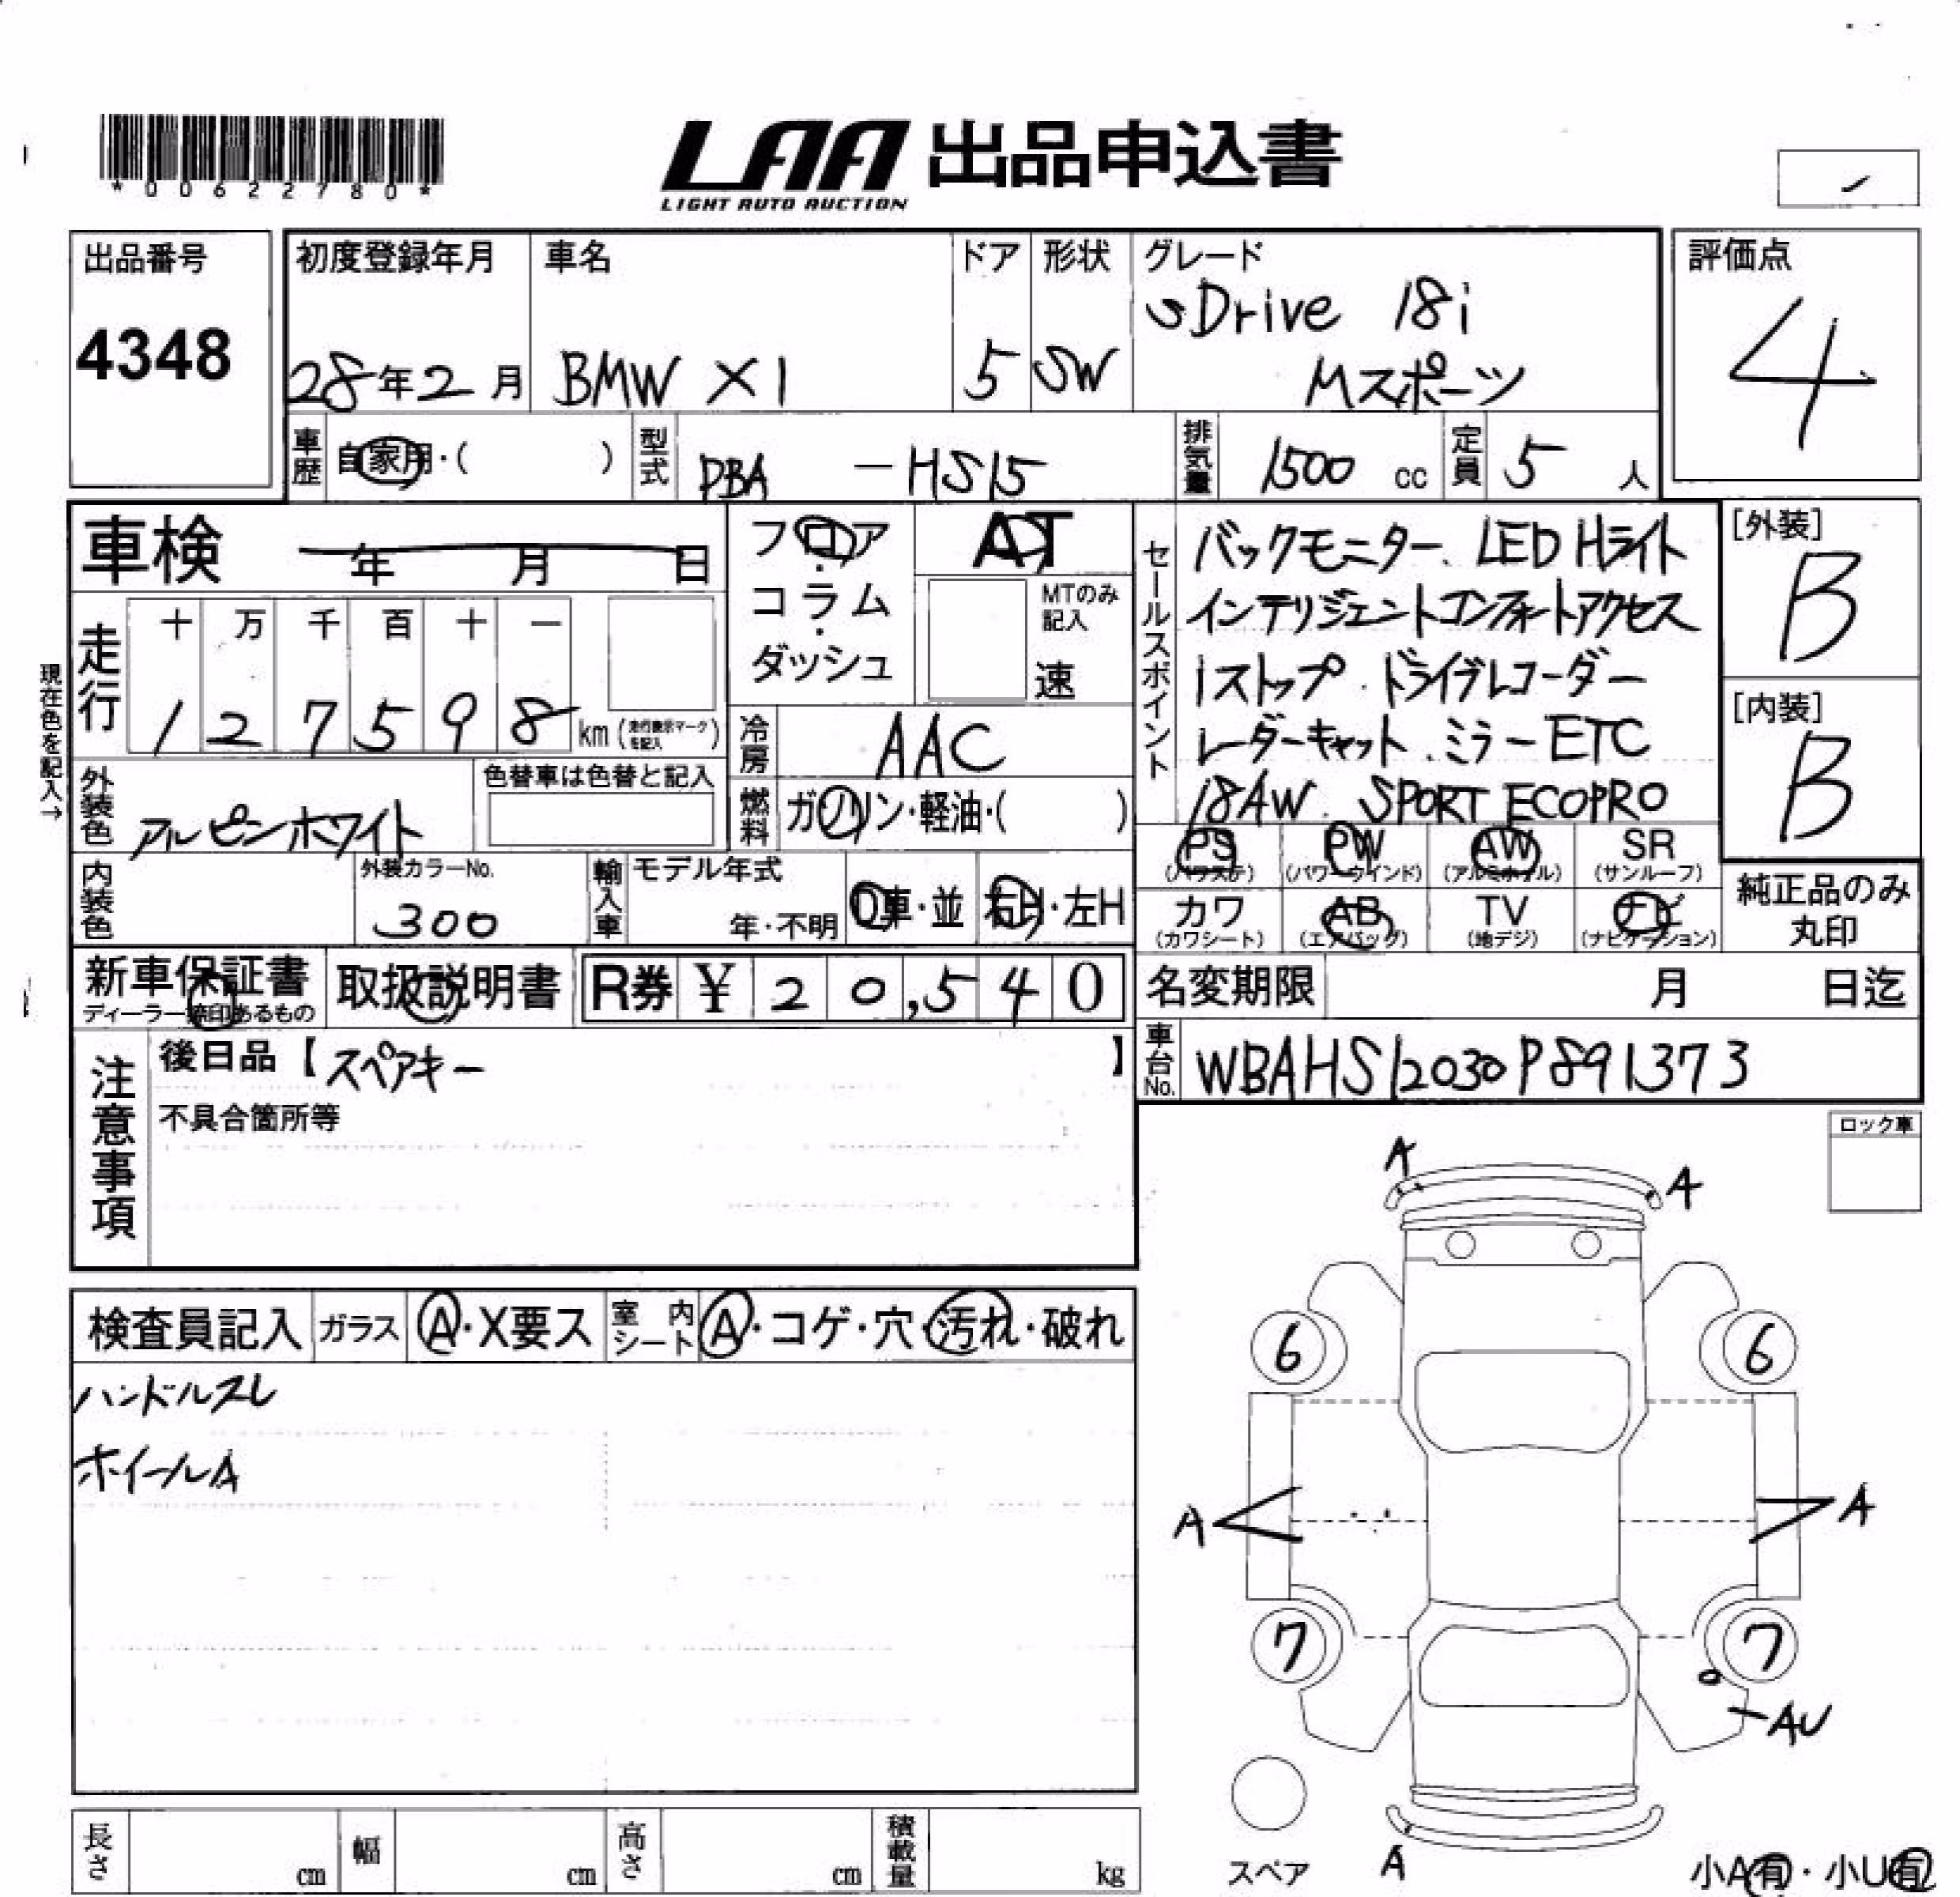 *00622780*
LAA 出品申込書
LIGHT AUTO AUCTION
出品番号
4348
初度登録年月
28年2月
車名
BMW X1
ドア
5
形状
SW
グレード
sDrive 18i
Mスポーツ
評価点
4
車歴
自家用・( )
型式
DBA -HS15
排気量
1500 cc
定員
5 人
車検 年 月 日
フロア・コラム・ダッシュ
AT
MTのみ記入
速
セールスポイント
バックモニター、LED Hライト
インテリジェントコンフォートアクセス
iストップ・ドライブレコーダー
レーダーキャット・ミラーETC
18AW. SPORT ECOPRO
[外装]
B
[内装]
B
現在色を記入→
走行
十 万 千 百 十 一
1 2 7 5 9 8 km (走行表示マークを記入)
冷房
AAC
外装色
アルピンホワイト
色替車は色替と記入
燃料
ガソリン・軽油・( )
内装色
外装カラーNo.
300
輸入車
モデル年式
年・不明
D車・並
右H・左H
PS
(パワステ)
PW
(パワーウインド)
AW
(アルミホイル)
SR
(サンルーフ)
カワ
(カワシート)
AB
(エアバッグ)
TV
(地デジ)
ナビ
(ナビゲーション)
純正品のみ
丸印
新車保証書
ディーラー捺印あるもの
取扱説明書
R券 ¥ 20,540
名変期限 月 日迄
車台No.
WBAHS12030P891373
注意事項
後日品【スペアキー 】
不具合箇所等
ロック車
検査員記入
ガラス
A・X要ス
室内シート
A・コゲ・穴・汚れ・破れ
ハンドルスレ
ホイールA
A
A
6
6
A
A
7
7
AU
スペア
A
小A有・小U有
長さ cm
幅 cm
高さ cm
積載量 kg